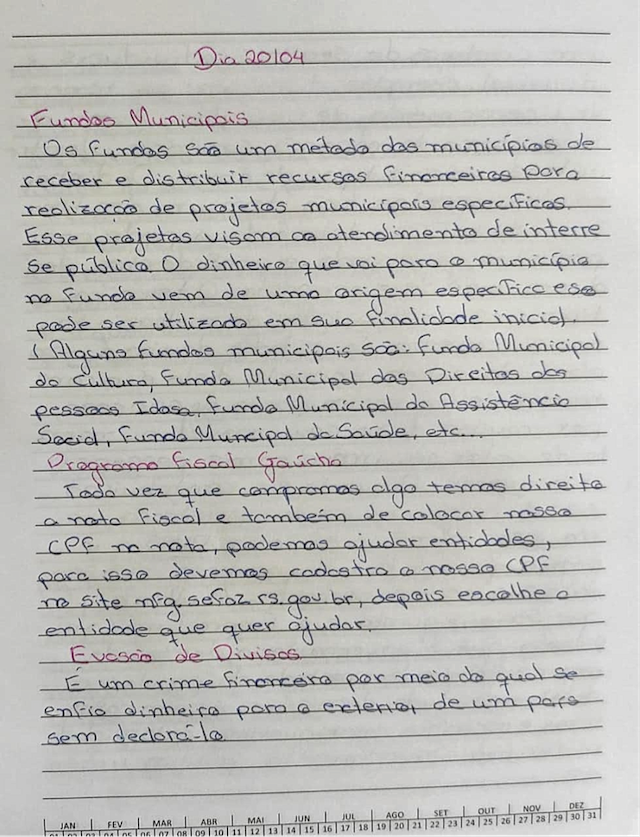 Dia 20/04
Fundos Municipais
Os fundos são um método dos municípios de
receber e distribuir recursos financeiros para
realização de projetos municipais específicos.
Esse projetos visam ao atendimento de interre
se público. O dinheiro que vai para o município
no fundo vem de uma origem específico e so
pode ser utilizado em sua finalidade inicial.
(Alguns fundos municipais são: Fundo Municipal
da Cultura, Fundo Municipal dos Direitos das
pessoas Idosa, Fundo Municipal da Assistência
Social, Fundo Muncipal da Saúde, etc...
Programa Fiscal Gaúcho
Toda vez que compramos algo temos direito
a nota fiscal e também de colocar nosso
CPF na nota, podemos ajudar entidades,
para isso devemos cadastra o nosso CPF
no site nfg.sefaz.rs.gov.br, depois escolhe a
entidade que quer ajudar.
Evasão de Divisas
É um crime financeiro por meio do qual se
enfia dinheiro para o exterior, de um país
sem declará-lo
JAN FEV MAR ABR MAI JUN JUL AGO SET OUT NOV DEZ
07 08 09 10 11 12 13 14 15 16 17 18 19 20 21 22 23 24 25 26 27 28 29 30 31